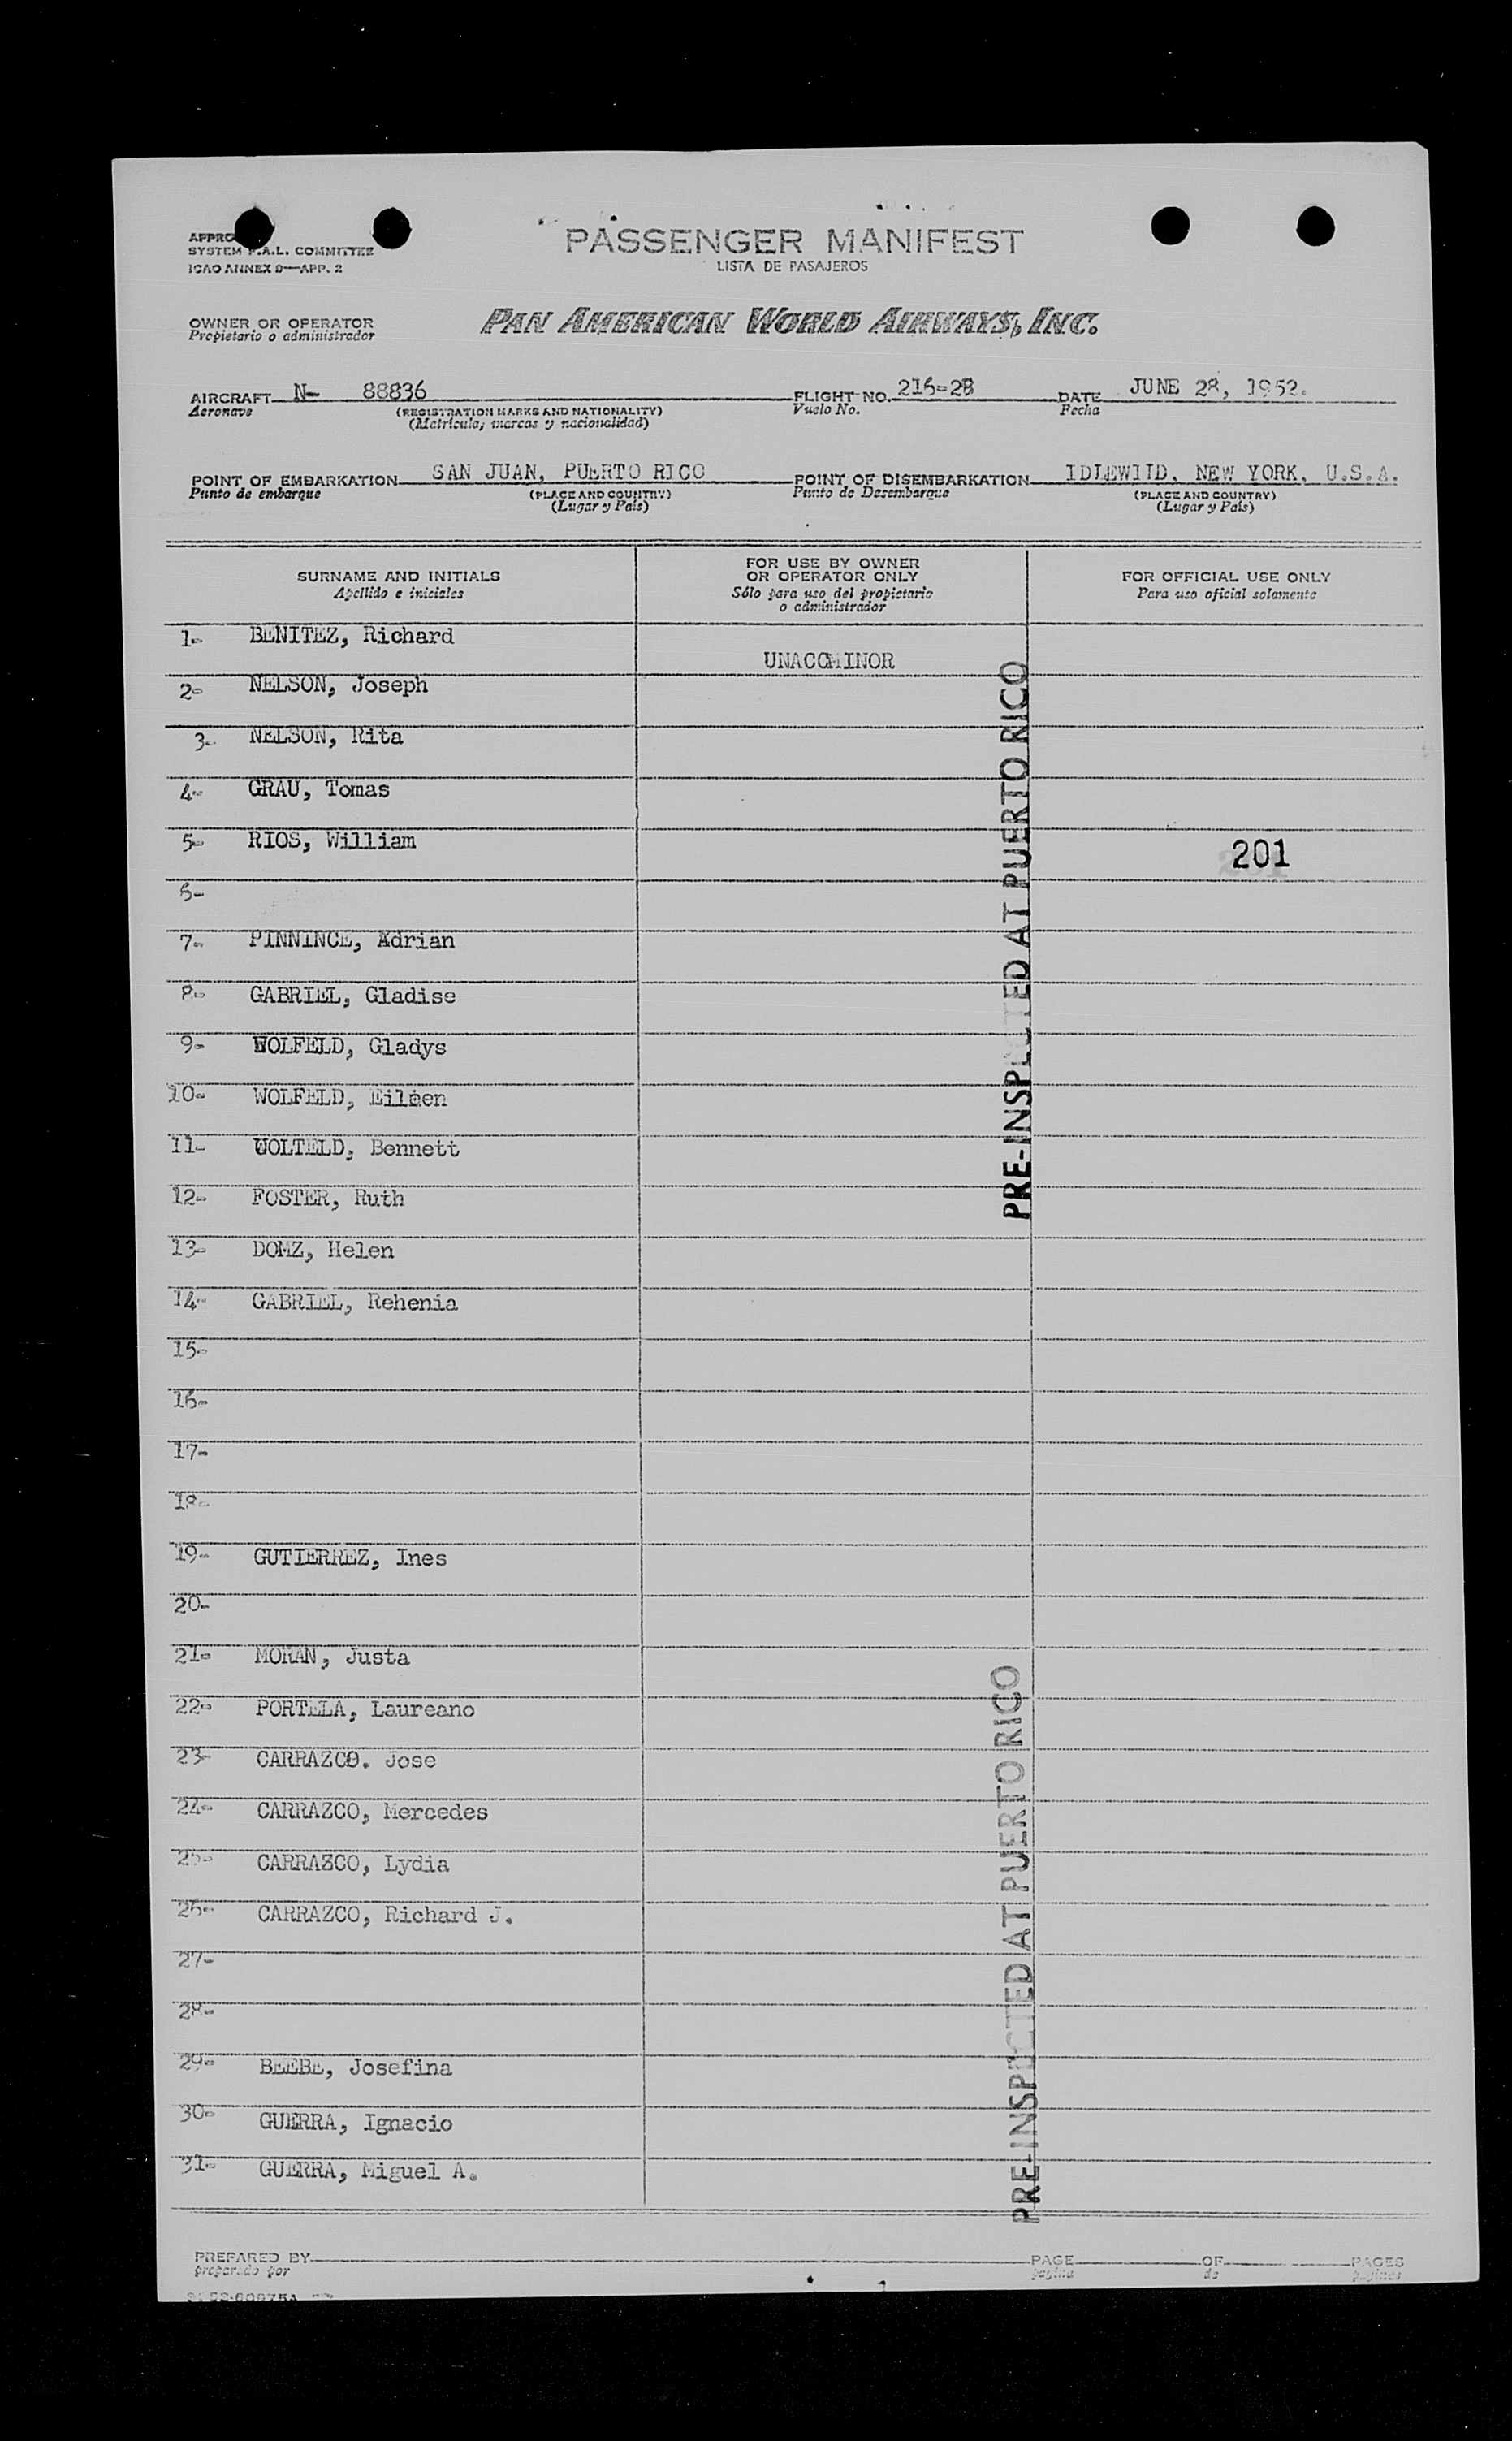 PASSENGER MANIFEST
LISTA DE PASAJEROS
SYSTEM F.A.L. COMMITTEE
ICAO ANNEX 9—APP. 2
OWNER OR OPERATOR
Propietario o administrador
PAN AMERICAN WORLD AIRWAYS, INC.
AIRCRAFT N- 88836 FLIGHT NO. 216-28 DATE JUNE 28, 1952.
Aeronave (REGISTRATION MARKS AND NATIONALITY) Vuelo No. Fecha
(Matricula, marcas y nacionalidad)
POINT OF EMBARKATION SAN JUAN, PUERTO RICO POINT OF DISEMBARKATION IDLEWIID, NEW YORK, U.S.A.
Punto de embarque (PLACE AND COUNTRY) Punto de Desembarque (PLACE AND COUNTRY)
(Lugar y País) (Lugar y País)
SURNAME AND INITIALS
Apellido e iniciales
FOR USE BY OWNER
OR OPERATOR ONLY
Sólo para uso del propietario
o administrador
FOR OFFICIAL USE ONLY
Para uso oficial solamente
1- BENITEZ, Richard
UNACCMINOR
2- NELSON, Joseph
3- NELSON, Rita
4- GRAU, Tomas
5- RIOS, William
201
6-
7- PINNINCE, Adrian
8- GABRIEL, Gladise
9- WOLFELD, Gladys
10- WOLFELD, Eileen
11- WOLTELD, Bennett
12- FOSTER, Ruth
13- DOMZ, Helen
14- GABRIEL, Rehenia
15-
16-
17-
18-
19- GUTIERREZ, Ines
20-
21- MORAN, Justa
22- PORTELA, Laureano
23- CARRAZCO. Jose
24- CARRAZCO, Mercedes
25- CARRAZCO, Lydia
26- CARRAZCO, Richard J.
27-
28-
29- BEEBE, Josefina
30- GUERRA, Ignacio
31- GUERRA, Miguel A.
PRE-INSPECTED AT PUERTO RICO
PRE-INSPECTED AT PUERTO RICO
PREPARED BY PAGE OF PAGES
preparado por pagina de paginas